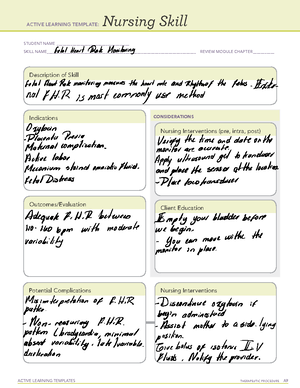 ACTIVE LEARNING TEMPLATE: Nursing Skill
STUDENT NAME
SKILL NAME Fetal Heart Rate Monitoring REVIEW MODULE CHAPTER
Description of Skill
Fetal Heart Rate monitoring measures the heart rate and rhythm of the fetus.
nal F.H.R is most commonly use method
Indications
Oxytocin
-Placenta Previa
Maternal complication.
Active labor
Meconium stained amniotic fluid.
Fetal Distress
CONSIDERATIONS
Nursing Interventions (pre, intra, post)
Verify the time and date on the
monitor are accurate.
Apply ultrasound gel to transducer
and place the sensor at the
-Place tocotransducer
Outcomes/Evaluation
Adequate F.H.R between
110-160 bpm with moderate
variability
Client Education
Empty your bladder before
we begin.
- You can move with the
monitor in place.
Potential Complications
Misinterpretation of F.H.R
- Non-reassuring F.H.R.
pattern (bradycardia, minimal
absent variability, late/variable
Nursing Interventions
-Discontinue oxytocin if
being administered
-Assist mother to a side-lying
position.
Give bolus of isotonic I.V
Fluids. Notify the provider.
ACTIVE LEARNING TEMPLATES
THERAPEUTIC PROCEDURE